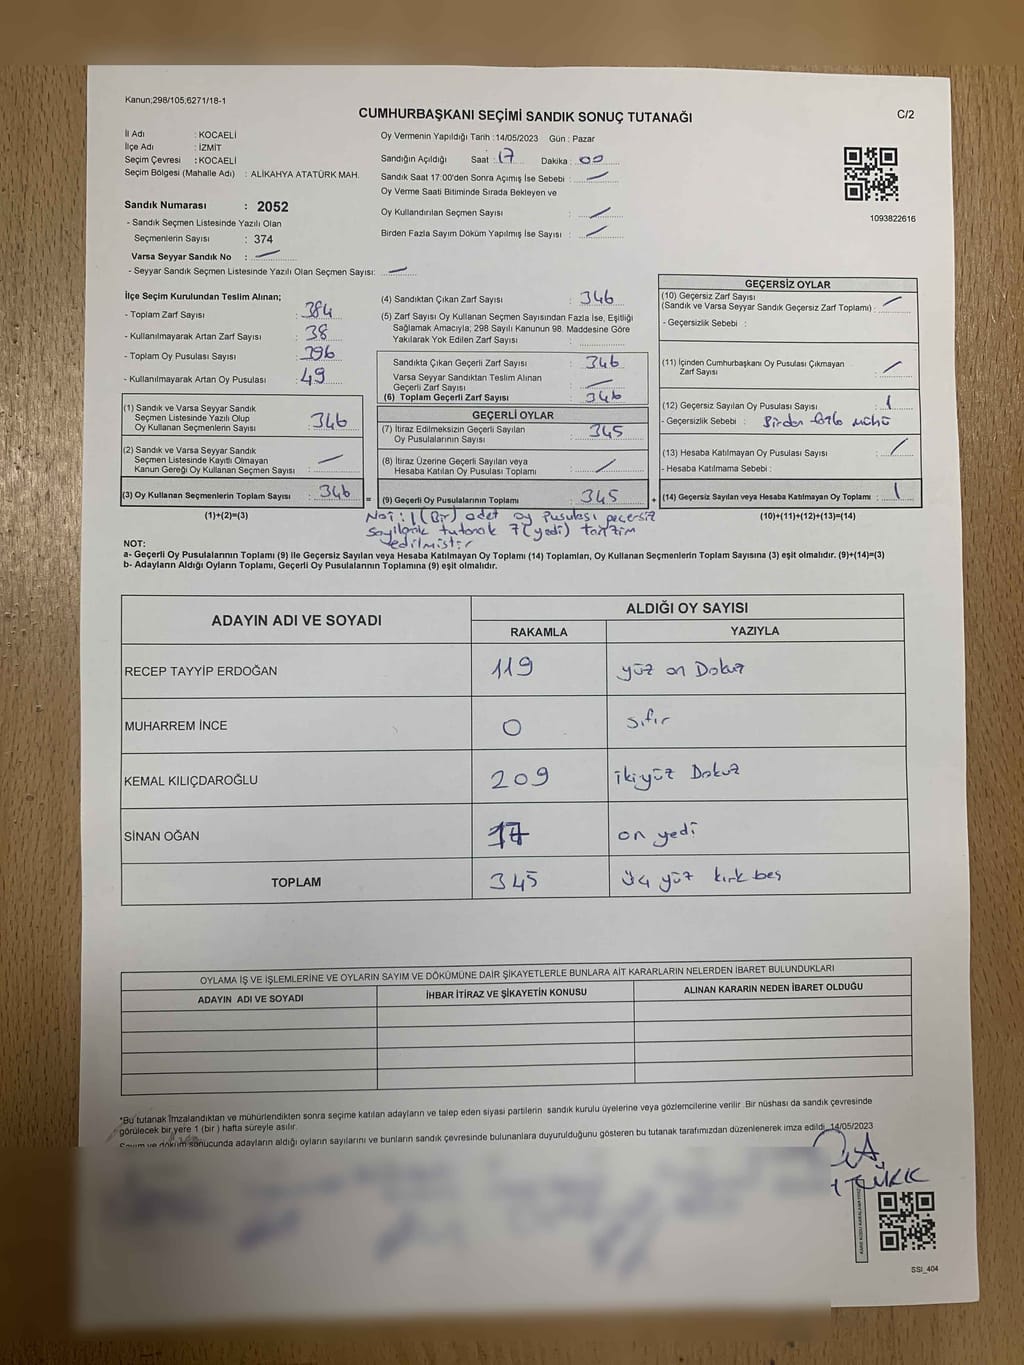 Kanun;298/105,6271/18-1
CUMHURBAŞKANI SEÇİMİ SANDIK SONUÇ TUTANAĞI
C/2
İl Adı : KOCAELİ
İlçe Adı : İZMİT
Seçim Çevresi : KOCAELİ
Seçim Bölgesi (Mahalle Adı) : ALİKAHYA ATATÜRK MAH.
Sandık Numarası : 2052
- Sandık Seçmen Listesinde Yazılı Olan
Seçmenlerin Sayısı : 374
Varsa Seyyar Sandık No : —
- Seyyar Sandık Seçmen Listesinde Yazılı Olan Seçmen Sayısı: —
Oy Vermenin Yapıldığı Tarih :14/05/2023 Gün : Pazar
Sandığın Açıldığı Saat : 17 Dakika : 00
Sandık Saat 17:00'den Sonra Açımış İse Sebebi : —
Oy Verme Saati Bitiminde Sırada Bekleyen ve
Oy Kullandırılan Seçmen Sayısı : —
Birden Fazla Sayım Döküm Yapılmış İse Sayısı : —
1093822616
İlçe Seçim Kurulundan Teslim Alınan;
- Toplam Zarf Sayısı : 384
- Kullanılmayarak Artan Zarf Sayısı : 38
- Toplam Oy Pusulası Sayısı : 396
- Kullanılmayarak Artan Oy Pusulası : 49
(1) Sandık ve Varsa Seyyar Sandık
Seçmen Listesinde Yazılı Olup
Oy Kullanan Seçmenlerin Sayısı : 346
(2) Sandık ve Varsa Seyyar Sandık
Seçmen Listesinde Kayıtlı Olmayan
Kanun Gereği Oy Kullanan Seçmen Sayısı : —
(3) Oy Kullanan Seçmenlerin Toplam Sayısı : 346
(1)+(2)=(3)
(4) Sandıktan Çıkan Zarf Sayısı : 346
(5) Zarf Sayısı Oy Kullanan Seçmen Sayısından Fazla İse, Eşitliği
Sağlamak Amacıyla; 298 Sayılı Kanunun 98. Maddesine Göre
Yakılarak Yok Edilen Zarf Sayısı :
Sandıkta Çıkan Geçerli Zarf Sayısı : 346
Varsa Seyyar Sandıktan Teslim Alınan
Geçerli Zarf Sayısı : —
(6) Toplam Geçerli Zarf Sayısı : 346
GEÇERLİ OYLAR
(7) İtiraz Edilmeksizin Geçerli Sayılan
Oy Pusulalarının Sayısı : 345
(8) İtiraz Üzerine Geçerli Sayılan veya
Hesaba Katılan Oy Pusulası Toplamı : /
= (9) Geçerli Oy Pusulalarının Toplamı : 345 +
GEÇERSİZ OYLAR
(10) Geçersiz Zarf Sayısı
(Sandık ve Varsa Seyyar Sandık Geçersiz Zarf Toplamı) : —
- Geçersizlik Sebebi :
(11) İçinden Cumhurbaşkanı Oy Pusulası Çıkmayan
Zarf Sayısı : /
(12) Geçersiz Sayılan Oy Pusulası Sayısı : 1
- Geçersizlik Sebebi : Birden fazla mühü
(13) Hesaba Katılmayan Oy Pusulası Sayısı : /
- Hesaba Katılmama Sebebi :
(14) Geçersiz Sayılan veya Hesaba Katılmayan Oy Toplamı : 1
(10)+(11)+(12)+(13)=(14)
Not: 1 (Bir) adet oy pusulası geçersiz
sayılarak tutanak 7 (yedi) tanzim
edilmiştir
NOT:
a- Geçerli Oy Pusulalarının Toplamı (9) ile Geçersiz Sayılan veya Hesaba Katılmayan Oy Toplamı (14) Toplamları, Oy Kullanan Seçmenlerin Toplam Sayısına (3) eşit olmalıdır. (9)+(14)=(3)
b- Adayların Aldığı Oyların Toplamı, Geçerli Oy Pusulalarının Toplamına (9) eşit olmalıdır.
ADAYIN ADI VE SOYADI
ALDIĞI OY SAYISI
RAKAMLA YAZIYLA
RECEP TAYYİP ERDOĞAN 119 yüz on Dokuz
MUHARREM İNCE 0 sıfır
KEMAL KILIÇDAROĞLU 209 ikiyüz Dokuz
SİNAN OĞAN 17 on yedi
TOPLAM 345 üç yüz kırk beş
OYLAMA İŞ VE İŞLEMLERİNE VE OYLARIN SAYIM VE DÖKÜMÜNE DAİR ŞİKAYETLERLE BUNLARA AİT KARARLARIN NELERDEN İBARET BULUNDUKLARI
ADAYIN ADI VE SOYADI İHBAR İTİRAZ VE ŞİKAYETİN KONUSU ALINAN KARARIN NEDEN İBARET OLDUĞU
*Bu tutanak İmzalandıktan ve mühürlendikten sonra seçime katılan adayların ve talep eden siyasi partilerin sandık kurulu üyelerine veya gözlemcilerine verilir .Bir nüshası da sandık çevresinde
görülecek bir yere 1 (bir ) hafta süreyle asılır.
Sayım ve döküm sonucunda adayların aldığı oyların sayılarını ve bunların sandık çevresinde bulunanlara duyurulduğunu gösteren bu tutanak tarafımızdan düzenlenerek imza edildi. 14/05/2023
SSI_404